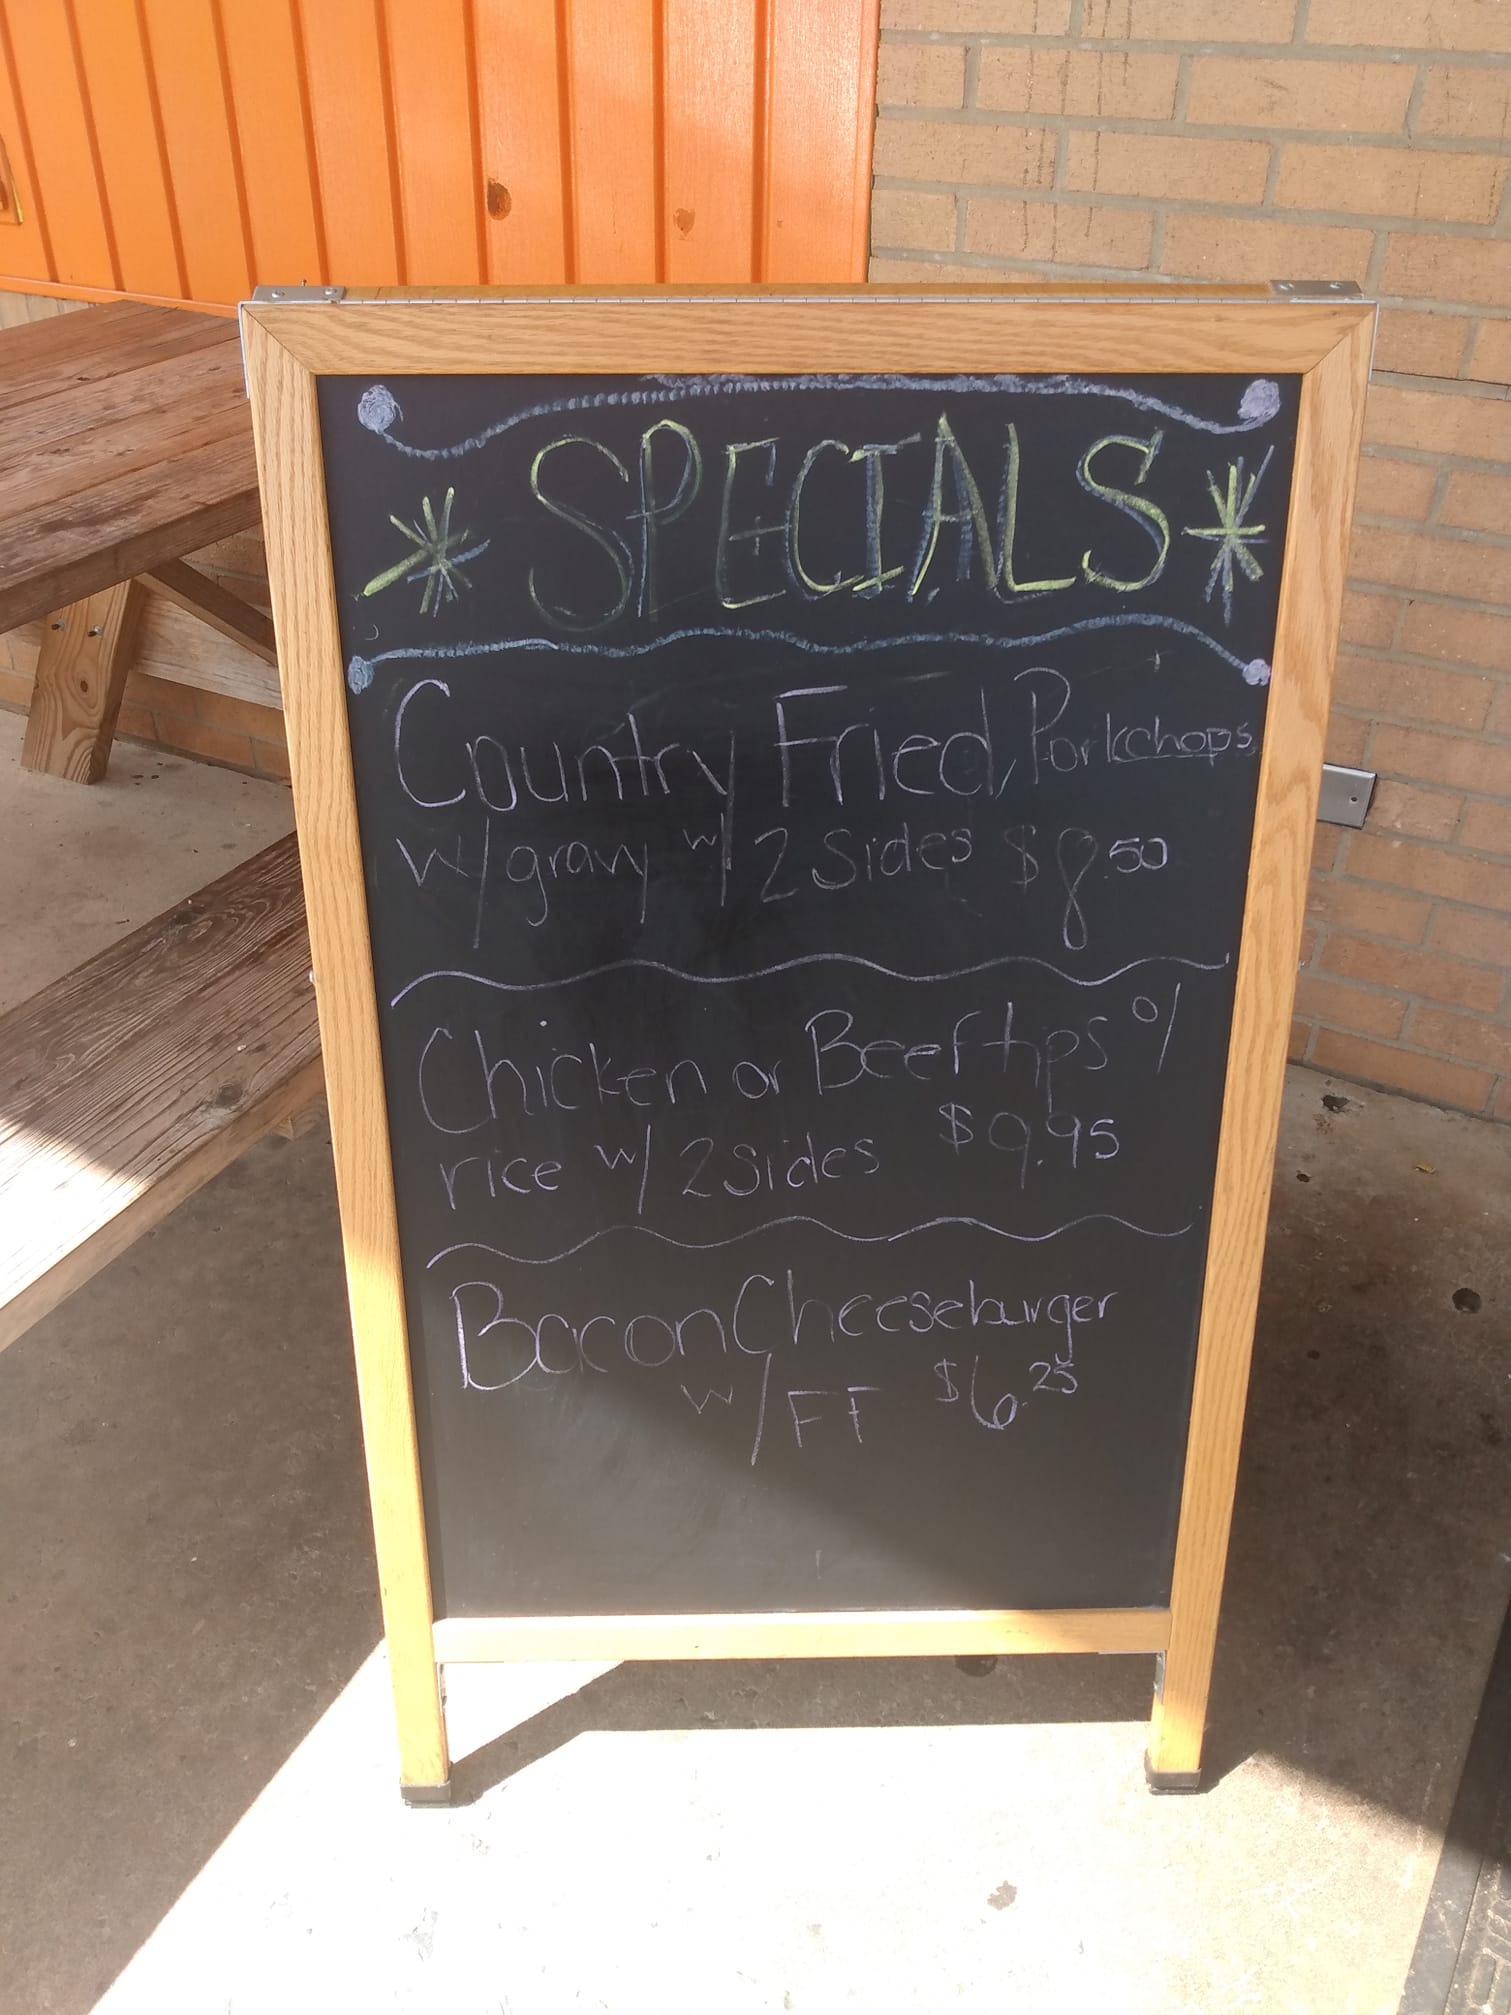 SPECIALS
Country Fried Porkchops
w/gravy w/ 2 Sides $8.50
Chicken or Beef tips o/
rice w/ 2 Sides $9.95
Bacon Cheeseburger
w/ FF $6.25